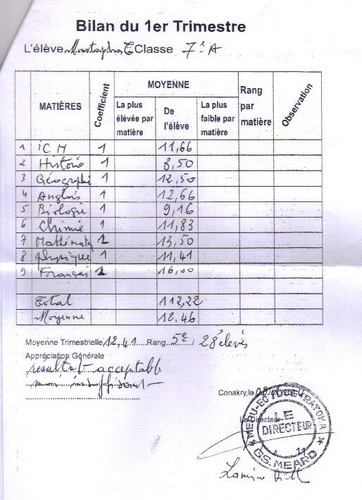 Bilan du 1er Trimestre
L'élève Mustapha Classe 7è A
MATIÈRES Coefficient MOYENNE Rang par matière Observation
La plus élevée par matière De l'élève La plus faible par matière
1 iCM 1 11,66
2 Histoire 1 8,50
3 Géographi 1 12,50
4 Anglais 1 12,66
5 Biologie 1 9,16
6 Chimie 1 11,83
7 Mathémat 1 13,50
8 physique 1 11,41
9 Français 1 16,00
Total 112,22
Moyenne 12.46
Moyenne Trimestrielle 12,41 Rang 5e / 28 élèves
Appréciation Générale
resultat acceptable
Conakry, le
Le Directeur
LE DIRECTEUR